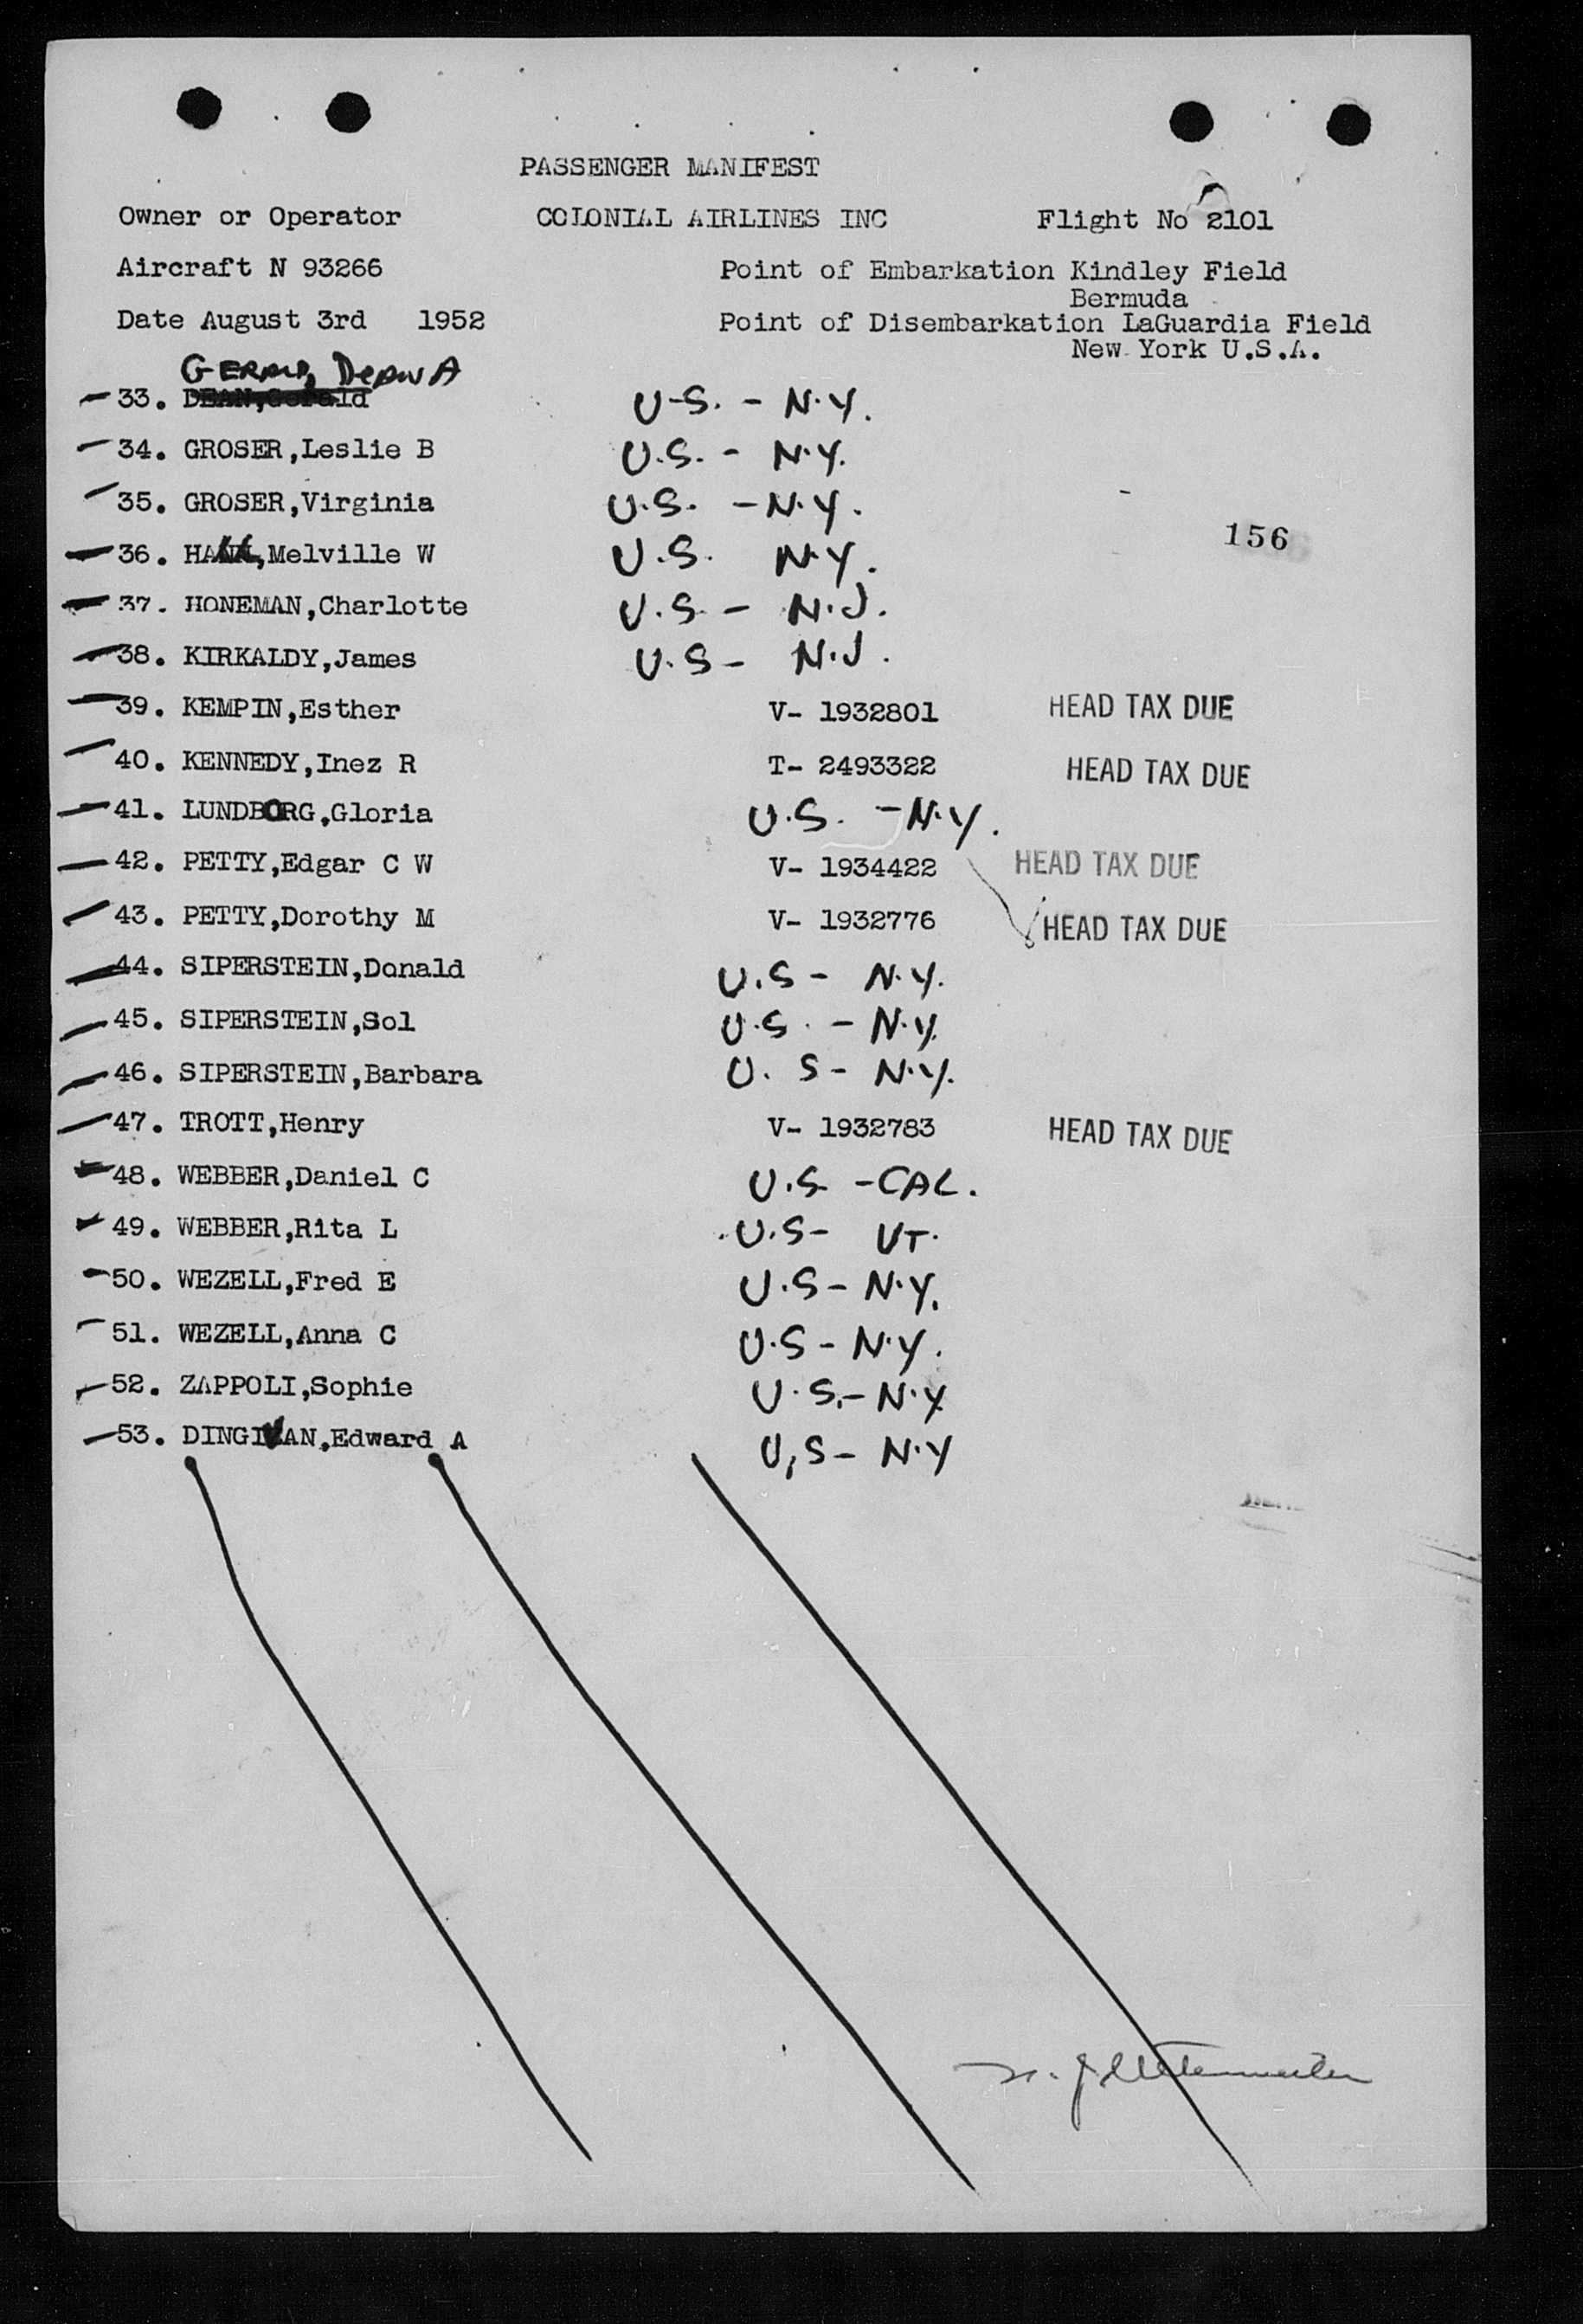 PASSENGER MANIFEST
Owner or Operator COLONIAL AIRLINES INC Flight No 2101
Aircraft N 93266 Point of Embarkation Kindley Field
Bermuda
Date August 3rd 1952 Point of Disembarkation LaGuardia Field
New York U.S.A.
GERALD, Dean A
33. DEAN,Gerald U-S. - N.Y.
34. GROSER,Leslie B U.S. - N.Y.
35. GROSER,Virginia U.S. - N.Y.
156
36. Melville W U.S. N.Y.
37. HONEMAN,Charlotte U.S. - N.J.
38. KIRKALDY,James U.S - N.J.
39. KEMPIN,Esther V- 1932801 HEAD TAX DUE
40. KENNEDY,Inez R T- 2493322 HEAD TAX DUE
41. LUNDBORG,Gloria U.S. - N.Y.
42. PETTY,Edgar C W V- 1934422 HEAD TAX DUE
43. PETTY,Dorothy M V- 1932776 HEAD TAX DUE
44. SIPERSTEIN,Donald U.S - N.Y.
45. SIPERSTEIN,Sol U.S. - N.Y.
46. SIPERSTEIN,Barbara U.S - N.Y.
47. TROTT,Henry V- 1932783 HEAD TAX DUE
48. WEBBER,Daniel C U.S. - CAL.
49. WEBBER,Rita L U.S - VT.
50. WEZELL,Fred E U.S - N.Y.
51. WEZELL,Anna C U.S - N.Y.
52. ZAPPOLI,Sophie U.S. - N.Y
53. Edward A U.S - N.Y